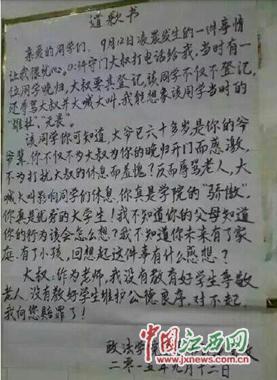 道歉书
亲爱的同学们，9月12日凌晨发生的一件事情
让我很忧心。0:15许守门大叔打电话给我，当时有一
位同学晚归，大叔要其登记，该同学不仅不登记，
还辱骂大叔并大喊大叫，我能想象该同学当时的
“雄壮”、“光景”。
该同学你可知道，大爷已六十多岁是你的爷
爷辈，你不仅不为大叔为你的晚归开门而感激，
不为打扰大叔的休息而羞愧？反而辱骂老人，大
喊大叫影响同学们休息，你真是学院的“骄傲”，
你真是优秀的大学生！我不知道你的父母知道
你的行为该会怎么想？我不知道你未来有了家
庭，有了小孩，回想起这件事有什么感想？
大叔：作为老师，我没有教育好学生孝敬
老人，没有教好学生维护公德良序，对不起，
我向您赔罪了！
政法学院
人
二〇一五年九月十二日
中国江西网